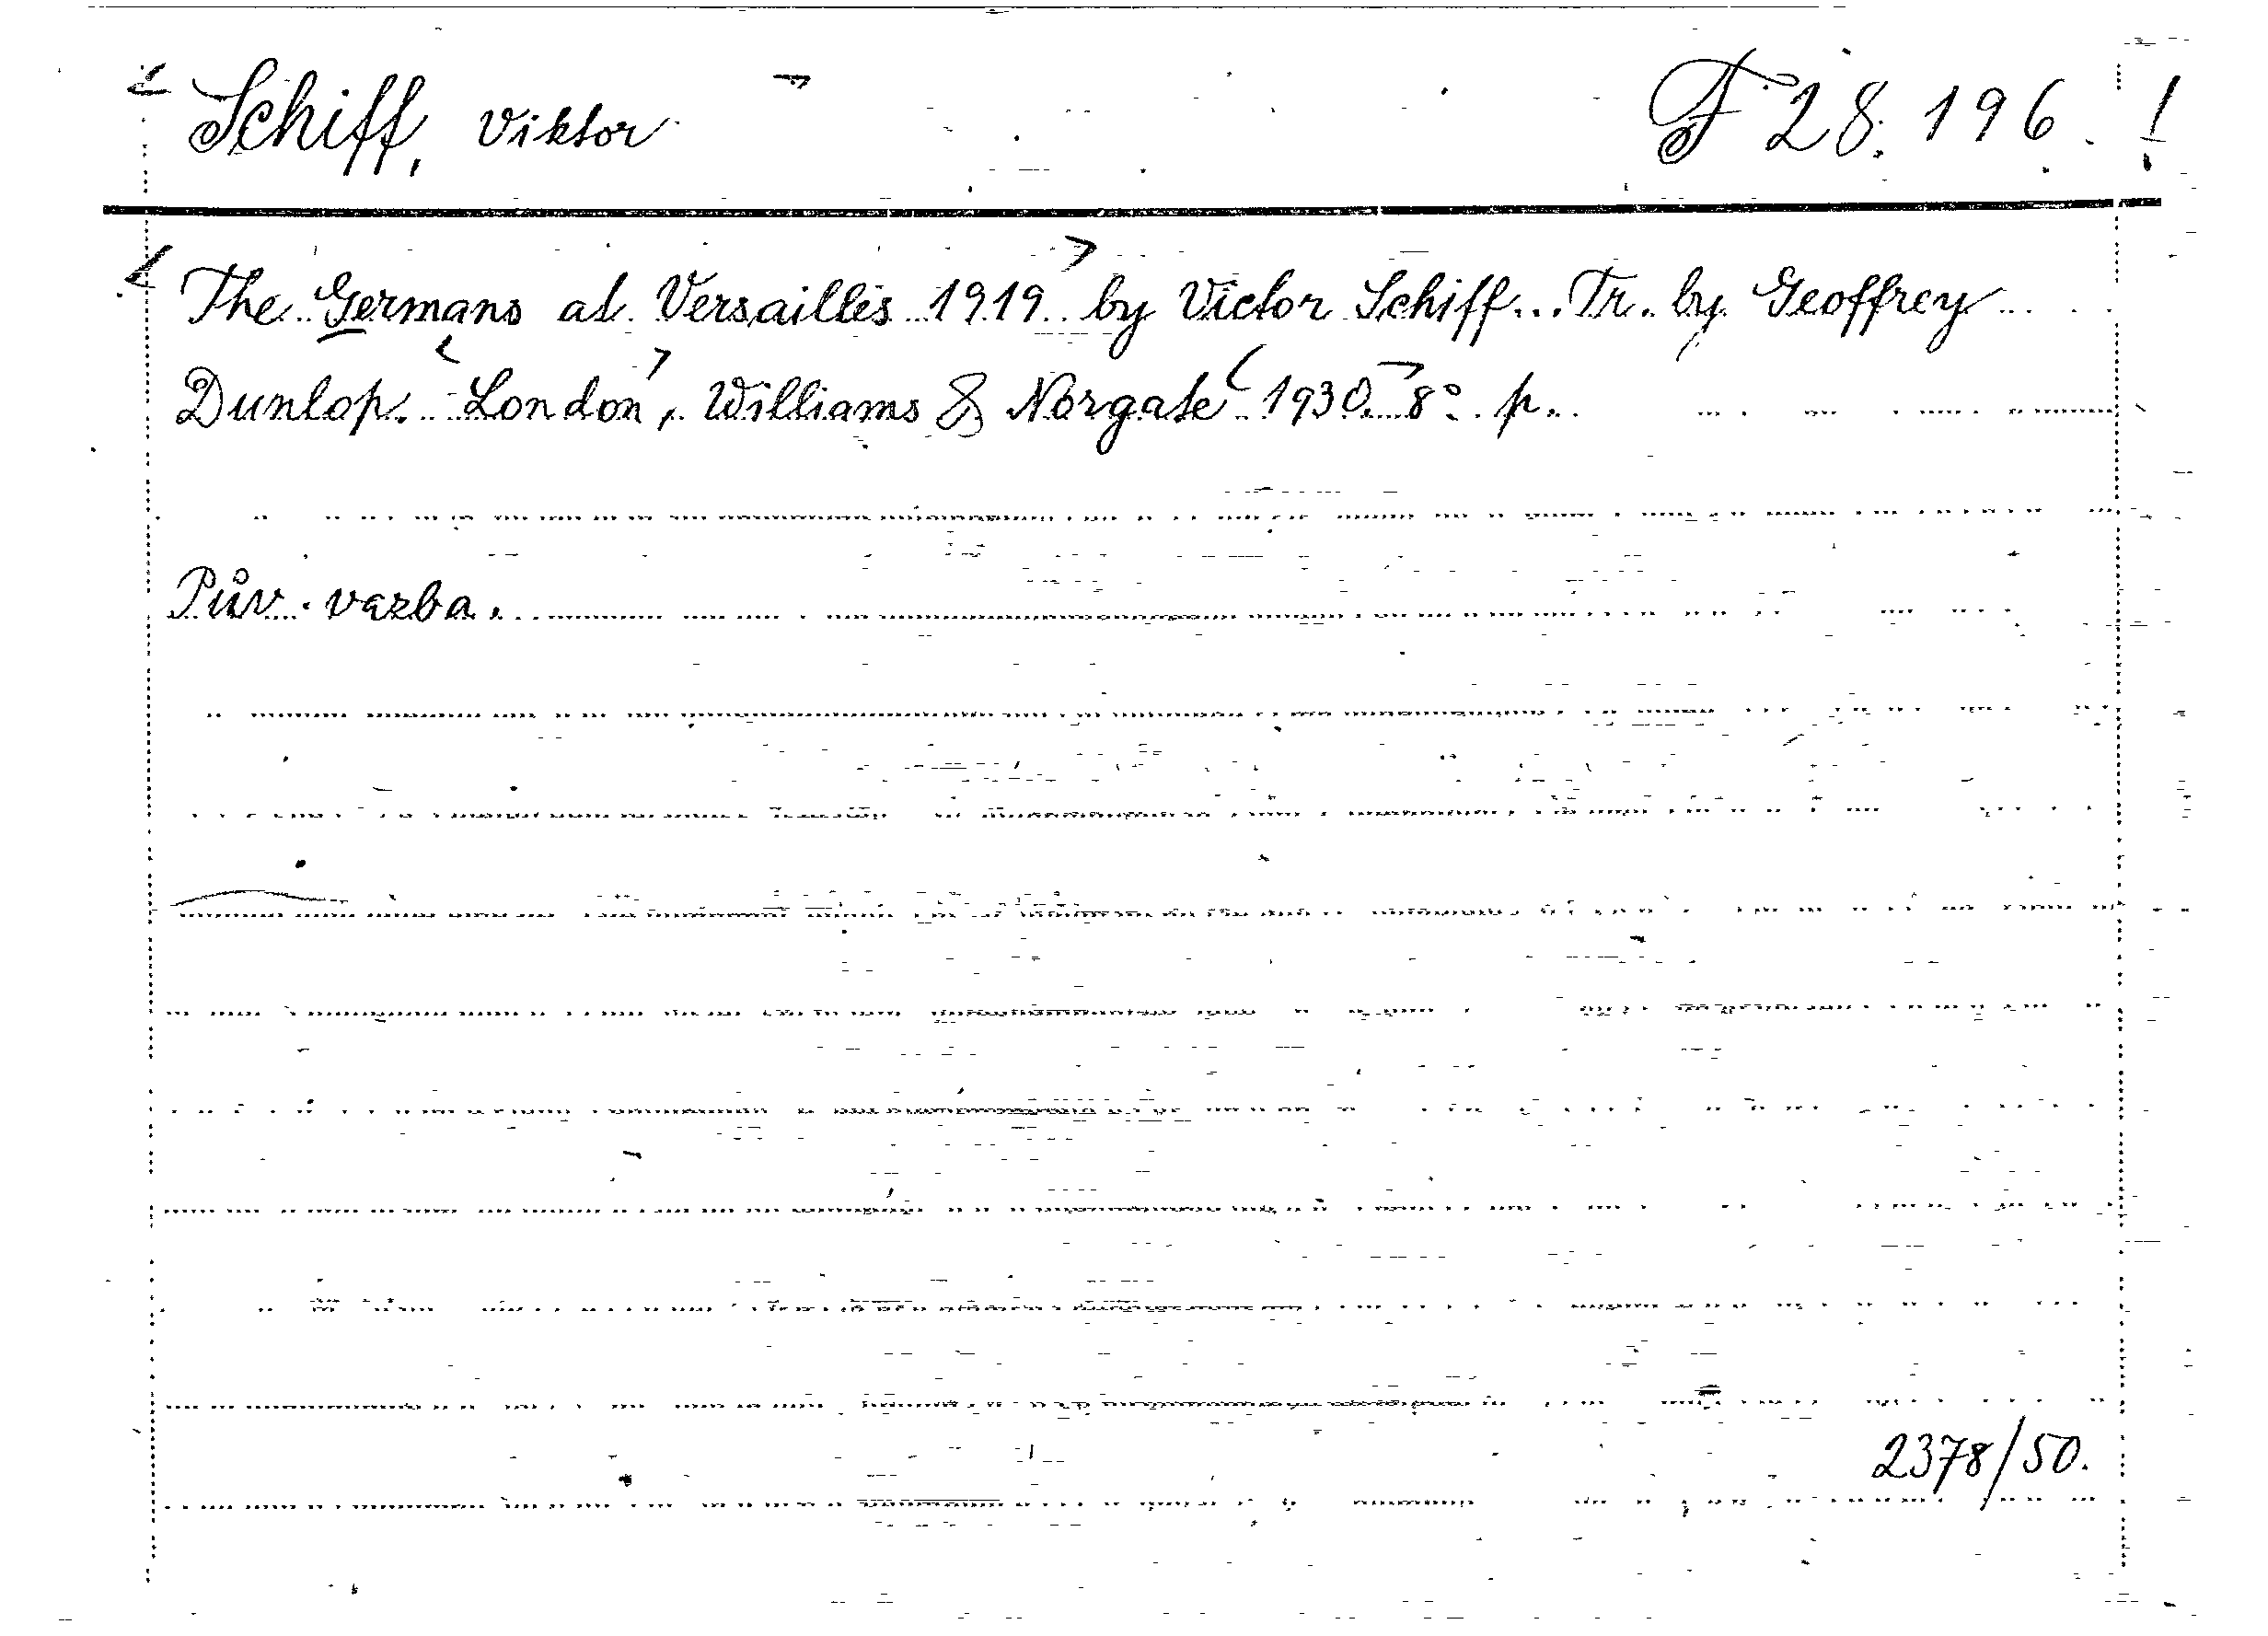 Schiff, Viktor F 28.196. !
<The Germans at Versailles 1919> by Victor Schiff... Tr. by Geoffrey
Dunlop. <London>, Williams & Norgate <1930.> 8°. p.
Pův. vazba.
2378/50.